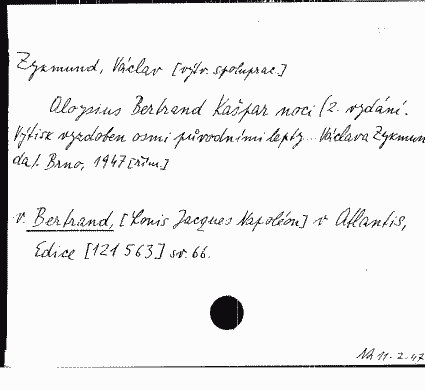 Zykmund, Václav [výtv. spoluprac.]
Aloysius Bertrand Kašpar noci (2. vydání.
Výtisk vyzdoben osmi původními lepty... Václava Zykmun
da). Brno, 1947 [řím.]
v. Bertrand, [Louis Jacques Napoléon] v Atlantis,
Edice [121 563] sv. 66.
11-2-47